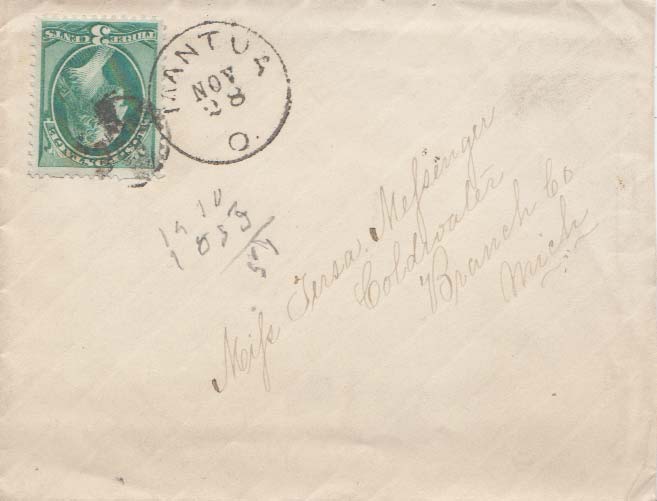 3
THREE CENTS
MANTUA
NOV
28
O.
1910
1859
51
Miss Tersa. Messinger
Coldwater
Branch Co
Mich